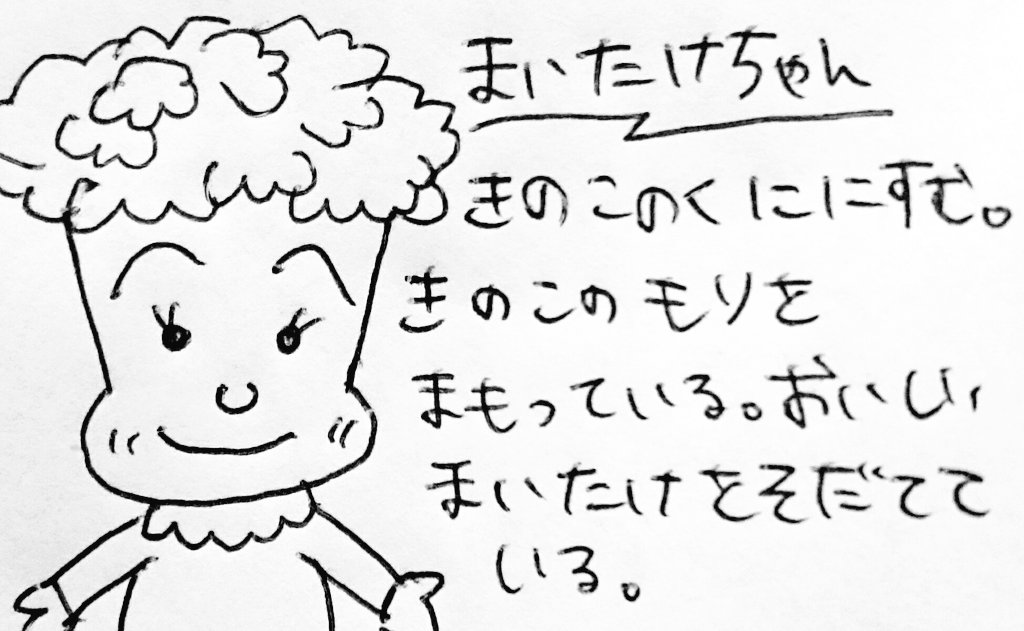 まいたけちゃん
きのこのくににすむ。
きのこのモリを
まもっている。おいしい
まいたけをそだてて
いる。